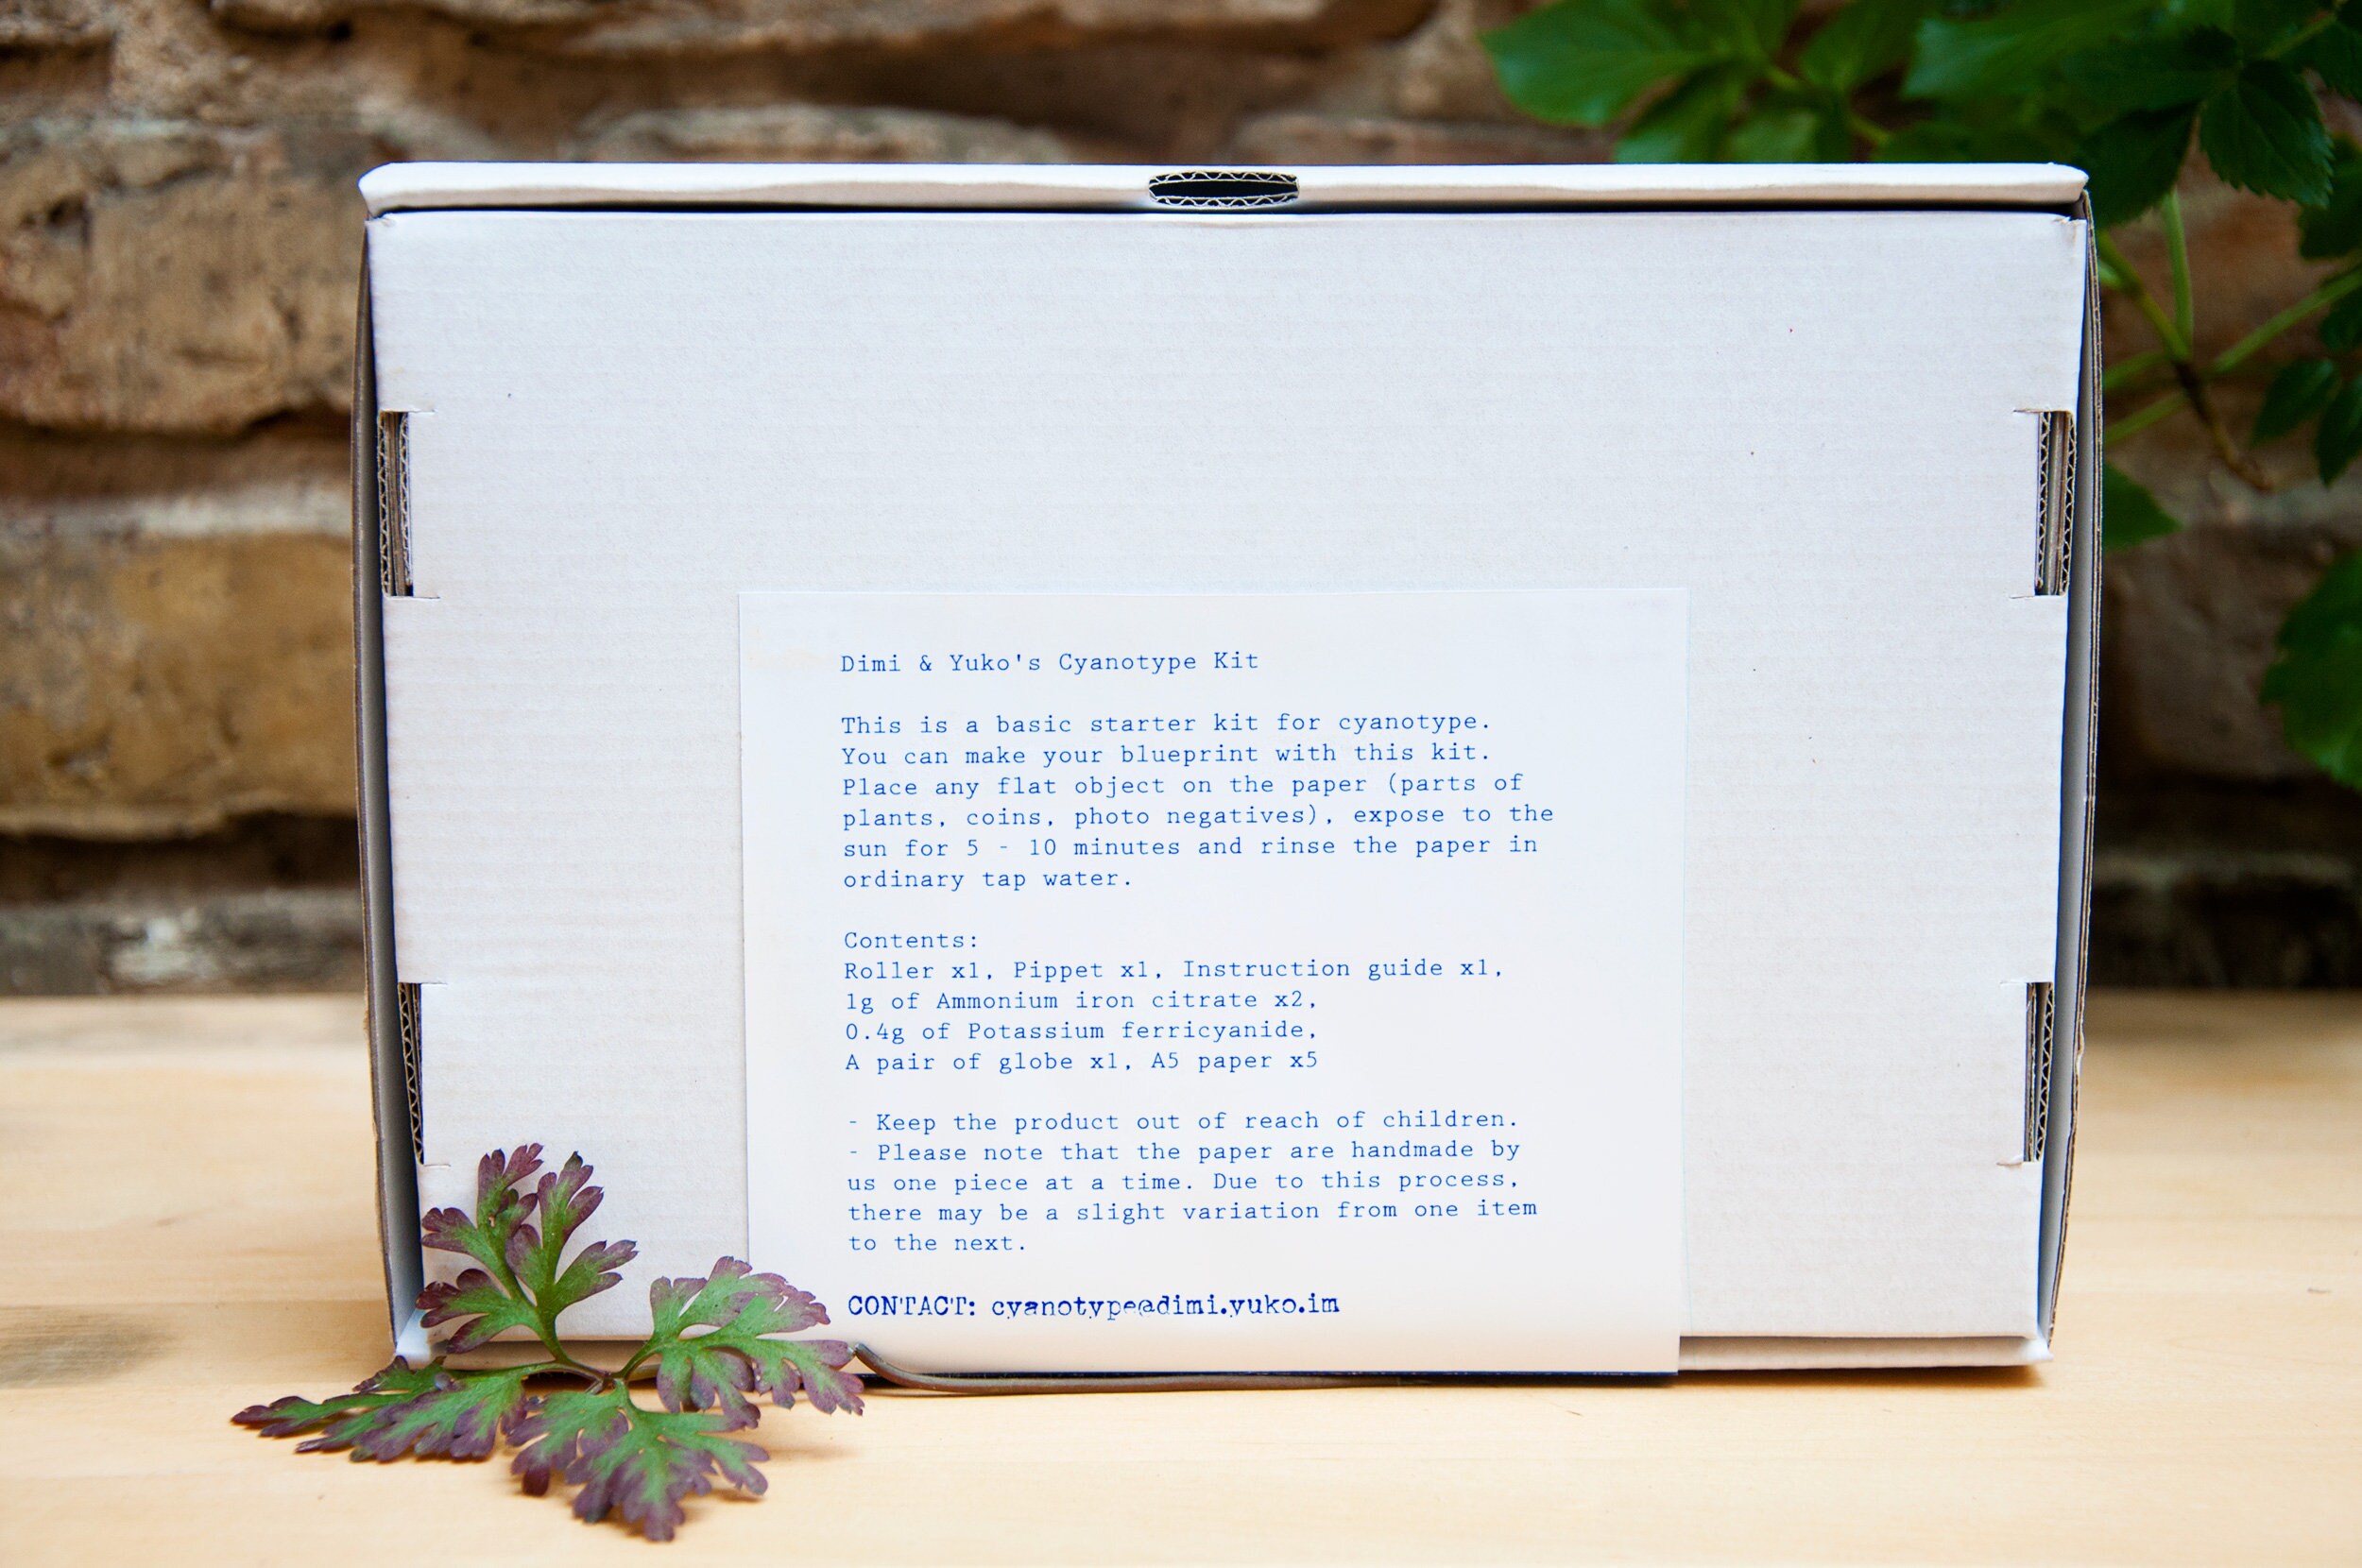 Dimi & Yuko's Cyanotype Kit
This is a basic starter kit for cyanotype.
You can make your blueprint with this kit.
Place any flat object on the paper (parts of
plants, coins, photo negatives), expose to the
sun for 5 - 10 minutes and rinse the paper in
ordinary tap water.
Contents:
Roller x1, Pippet x1, Instruction guide x1,
1g of Ammonium iron citrate x2,
0.4g of Potassium ferricyanide,
A pair of globe x1, A5 paper x5
- Keep the product out of reach of children.
- Please note that the paper are handmade by
us one piece at a time. Due to this process,
there may be a slight variation from one item
to the next.
CONTACT: cyanotype@dimi.yuko.im